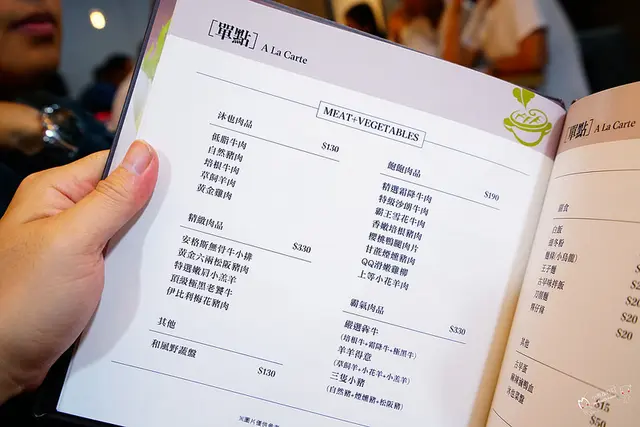 [單點] A La Carte
MEAT+VEGETABLES
沐也肉品 $130
低脂牛肉
自然豬肉
培根牛肉
草飼羊肉
黃金雞肉
精緻肉品 $330
安格斯無骨牛小排
黃金六兩松阪豬肉
特選嫩肩小羔羊
頂級極黑老饕牛
伊比利梅花豬肉
其他
和風野蔬盤 $130
飽飽肉品 $190
精選霜降牛肉
特級沙朗牛肉
霸王雪花牛肉
香嫩培根豬肉
櫻桃鴨腿肉片
甘蔗煙燻豬肉
QQ滑嫩雞柳
上等小花羊肉
霸氣肉品 $330
嚴選犇牛
(培根牛+霜降牛+極黑牛)
羊羊得意
(草飼羊+小花羊+小羔羊)
三隻小豬
(自然豬+煙燻豬+松阪豬)
※圖片僅供參
[單點] A La Carte
副食
白飯
王子麵
古早味拌飯
$20
$20
$20
其他
古早蛋
$15
$50